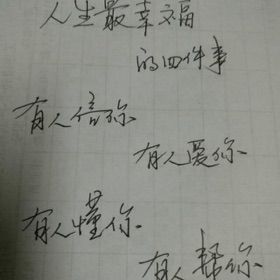 人生最幸福
的四件事
有人信你
有人爱你
有人懂你
有人帮你